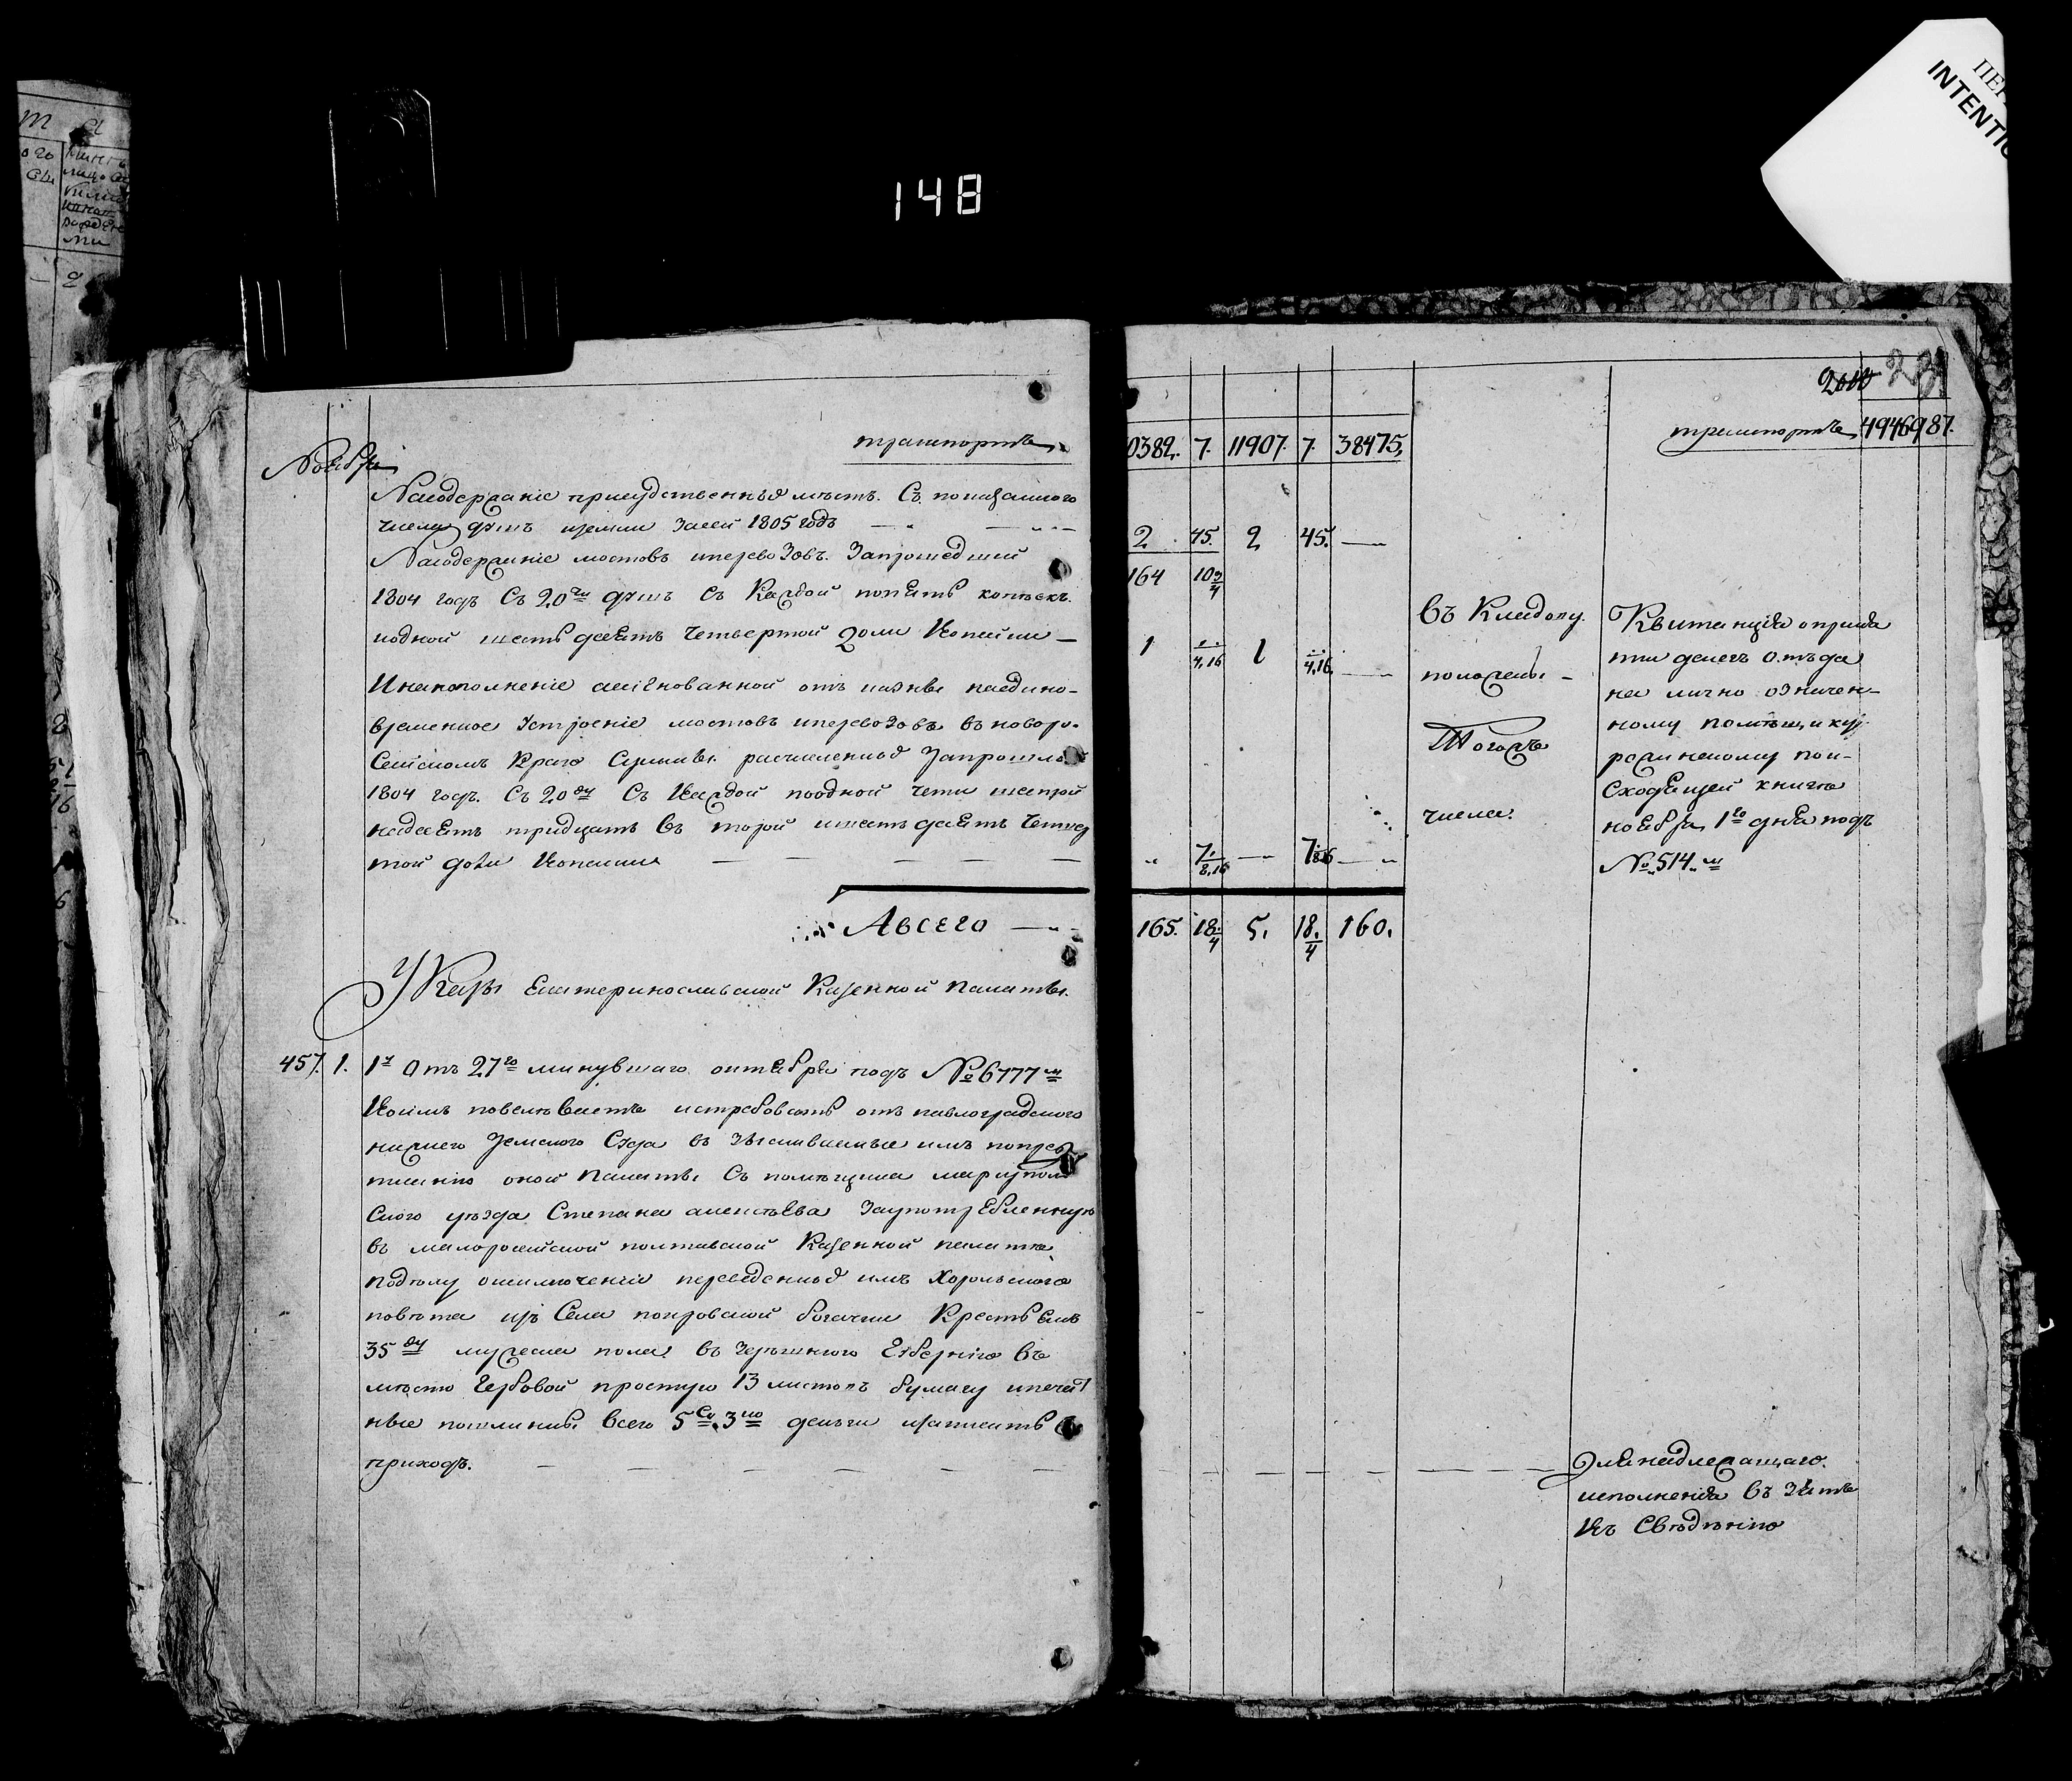 148
INTENTIO
Ноября
транспортъ
Насодержаніе присудственныхъ мѣстъ. Съ показанного
числа душъ иземли засей 1805 годъ
Насодержаніе мостовъ иперевозовъ. Запрошедшій
1804 годъ Съ 20ти душъ съ Каждой попяти копѣекъ.
иодной шестьдесятъ четвертой доли Копейки
Инапополненіе асигнованной отъ казны наедино-
временное устроеніе мостовъ иперевозовъ въ новоро-
сійскомъ Краю Суммы расчисленныхъ Запрошлой
1804 годъ. Съ 20ду Съ Каждой поодной чети шестой
надесять тридцать въ торой ишестьдесятъ четвер
той доли Копейки
Авсего
Указы Екатеринославской Казенной палаты.
457. 1. 1й Отъ 27го минувшаго октября подъ № 6777м
Коимъ повелѣваетъ истребовать отъ павлоградского
нижнего Земского Суда въ зыскиваемые имъ попред
писанію оной Палаты Съ помѣщика мариупол
ского уѣзда Степана алексѣева Заупотребленную
въ малоросійской полтавской Казенной палатѣ
поделу оисключеніи переведенныхъ имъ Хорольского
повѣта изъ Села покровской богачки Крестьянъ
35ду мужеска пола въ здешнюю Губернію въ
мѣсто гербовой простую 13 листовъ бумагу ипечат
ные пошлины всего 5 3 деньги изаписать въ
приходъ.
2000
транспортъ 49469 87.
0382. 7. 11907. 7. 38475,
2 45. 2 45.
164 10 3/4
1 1/4.16 1 4.16
7. 8.16 7. 8.16
165. 18./4 5. 18./4 160.
въ Кладову.
положены
Тогожъ
числа.
Квитанція опріня
тіи денегъ отъда
на лично означен-
ному помѣщику
поис-
Сходящей книги
ноября 1го дня подъ
№ 514.м
Для надлежащаго.
исполненія въ зяте
Къ Сведенію